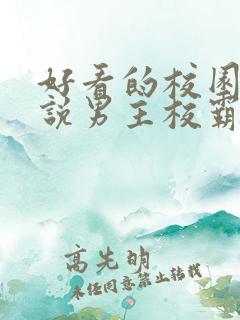 好看的校园
說男主校霸
高先明
未经同意禁止转载